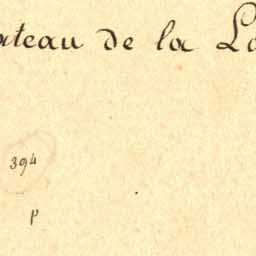 ateau de la La
394
P